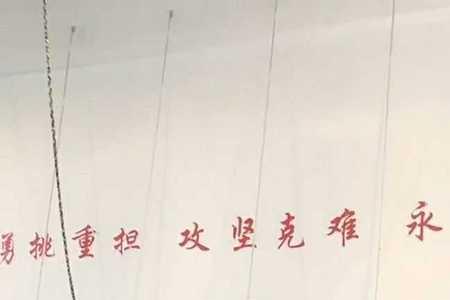 勇挑重担 攻坚克难 永